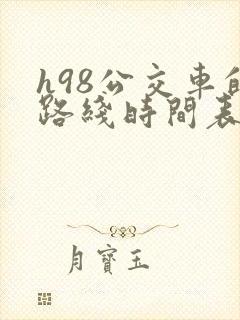 h98公交車
路綫時間表
月寶玉